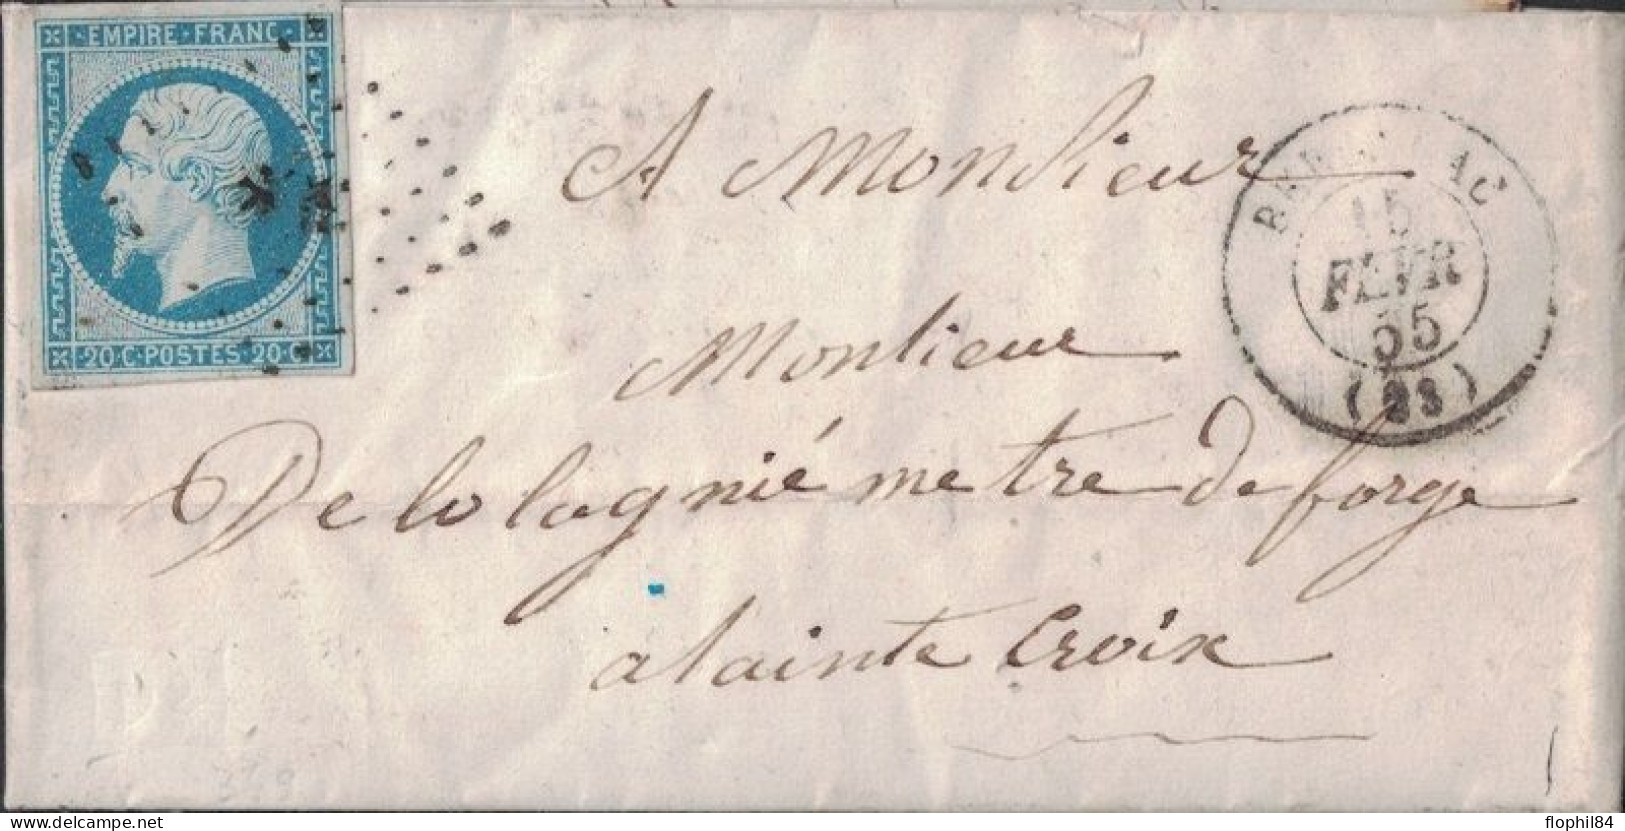 EMPIRE FRANC
20 C POSTES 20 C
A Monsieur
Monsieur
Delolagnié metre de forge
a sainte Croix
15
FEVR
55
flophil84